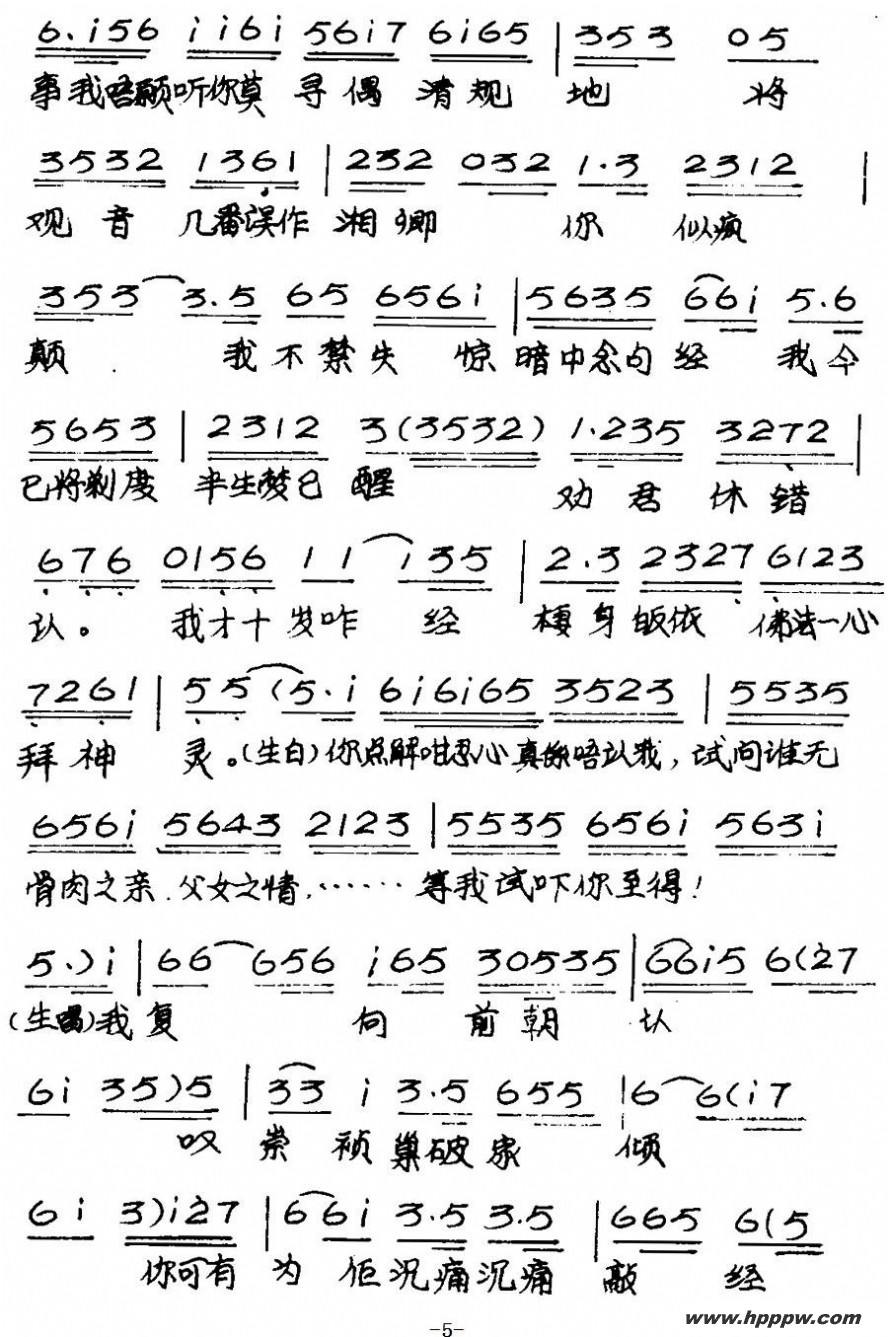 6.i56 i i6i 56i7 6i65 | 353 05
事我唔愿听你莫 寻 偶 清 规 地 将
3532 1361 | 232 032 1.3 2312 |
观 音 几番误作 湘 卿 你 似疯
353 3.5 65 656i | 5635 66i 5.6
颠 . 我 不 禁 失 惊 暗中念句 经 我 今
5653 | 2312 3(3532) 1.235 3272 |
已将剃度 半生梦已 醒 劝 君 休 错
676 0156 11 135 | 2.3 2327 6123
认。 我才十岁咋 经 栖 身 皈依 佛法一心
7261 | 55 (5.i 6i6i65 3523 | 5535
拜 神 灵。(生白)你点解咁忍心真係唔认我，试问谁无
656i 5643 2123 | 5535 656i 563i
骨肉之亲.父女之情,…… 等我试吓你至得！
5.)i | 66 656 i65 30535 | 66i5 6(27
(生唱)我 复 向 前 朝 认
6i 35)5 | 33 i 3.5 655 | 6 6(i7
叹 崇 祯 巢破 家 倾
6i 3)i27 | 66i 3.5 3.5 | 665 6(5
你可有 为 佢 沉痛沉痛 敲 经
-5-
www.hpppw.com